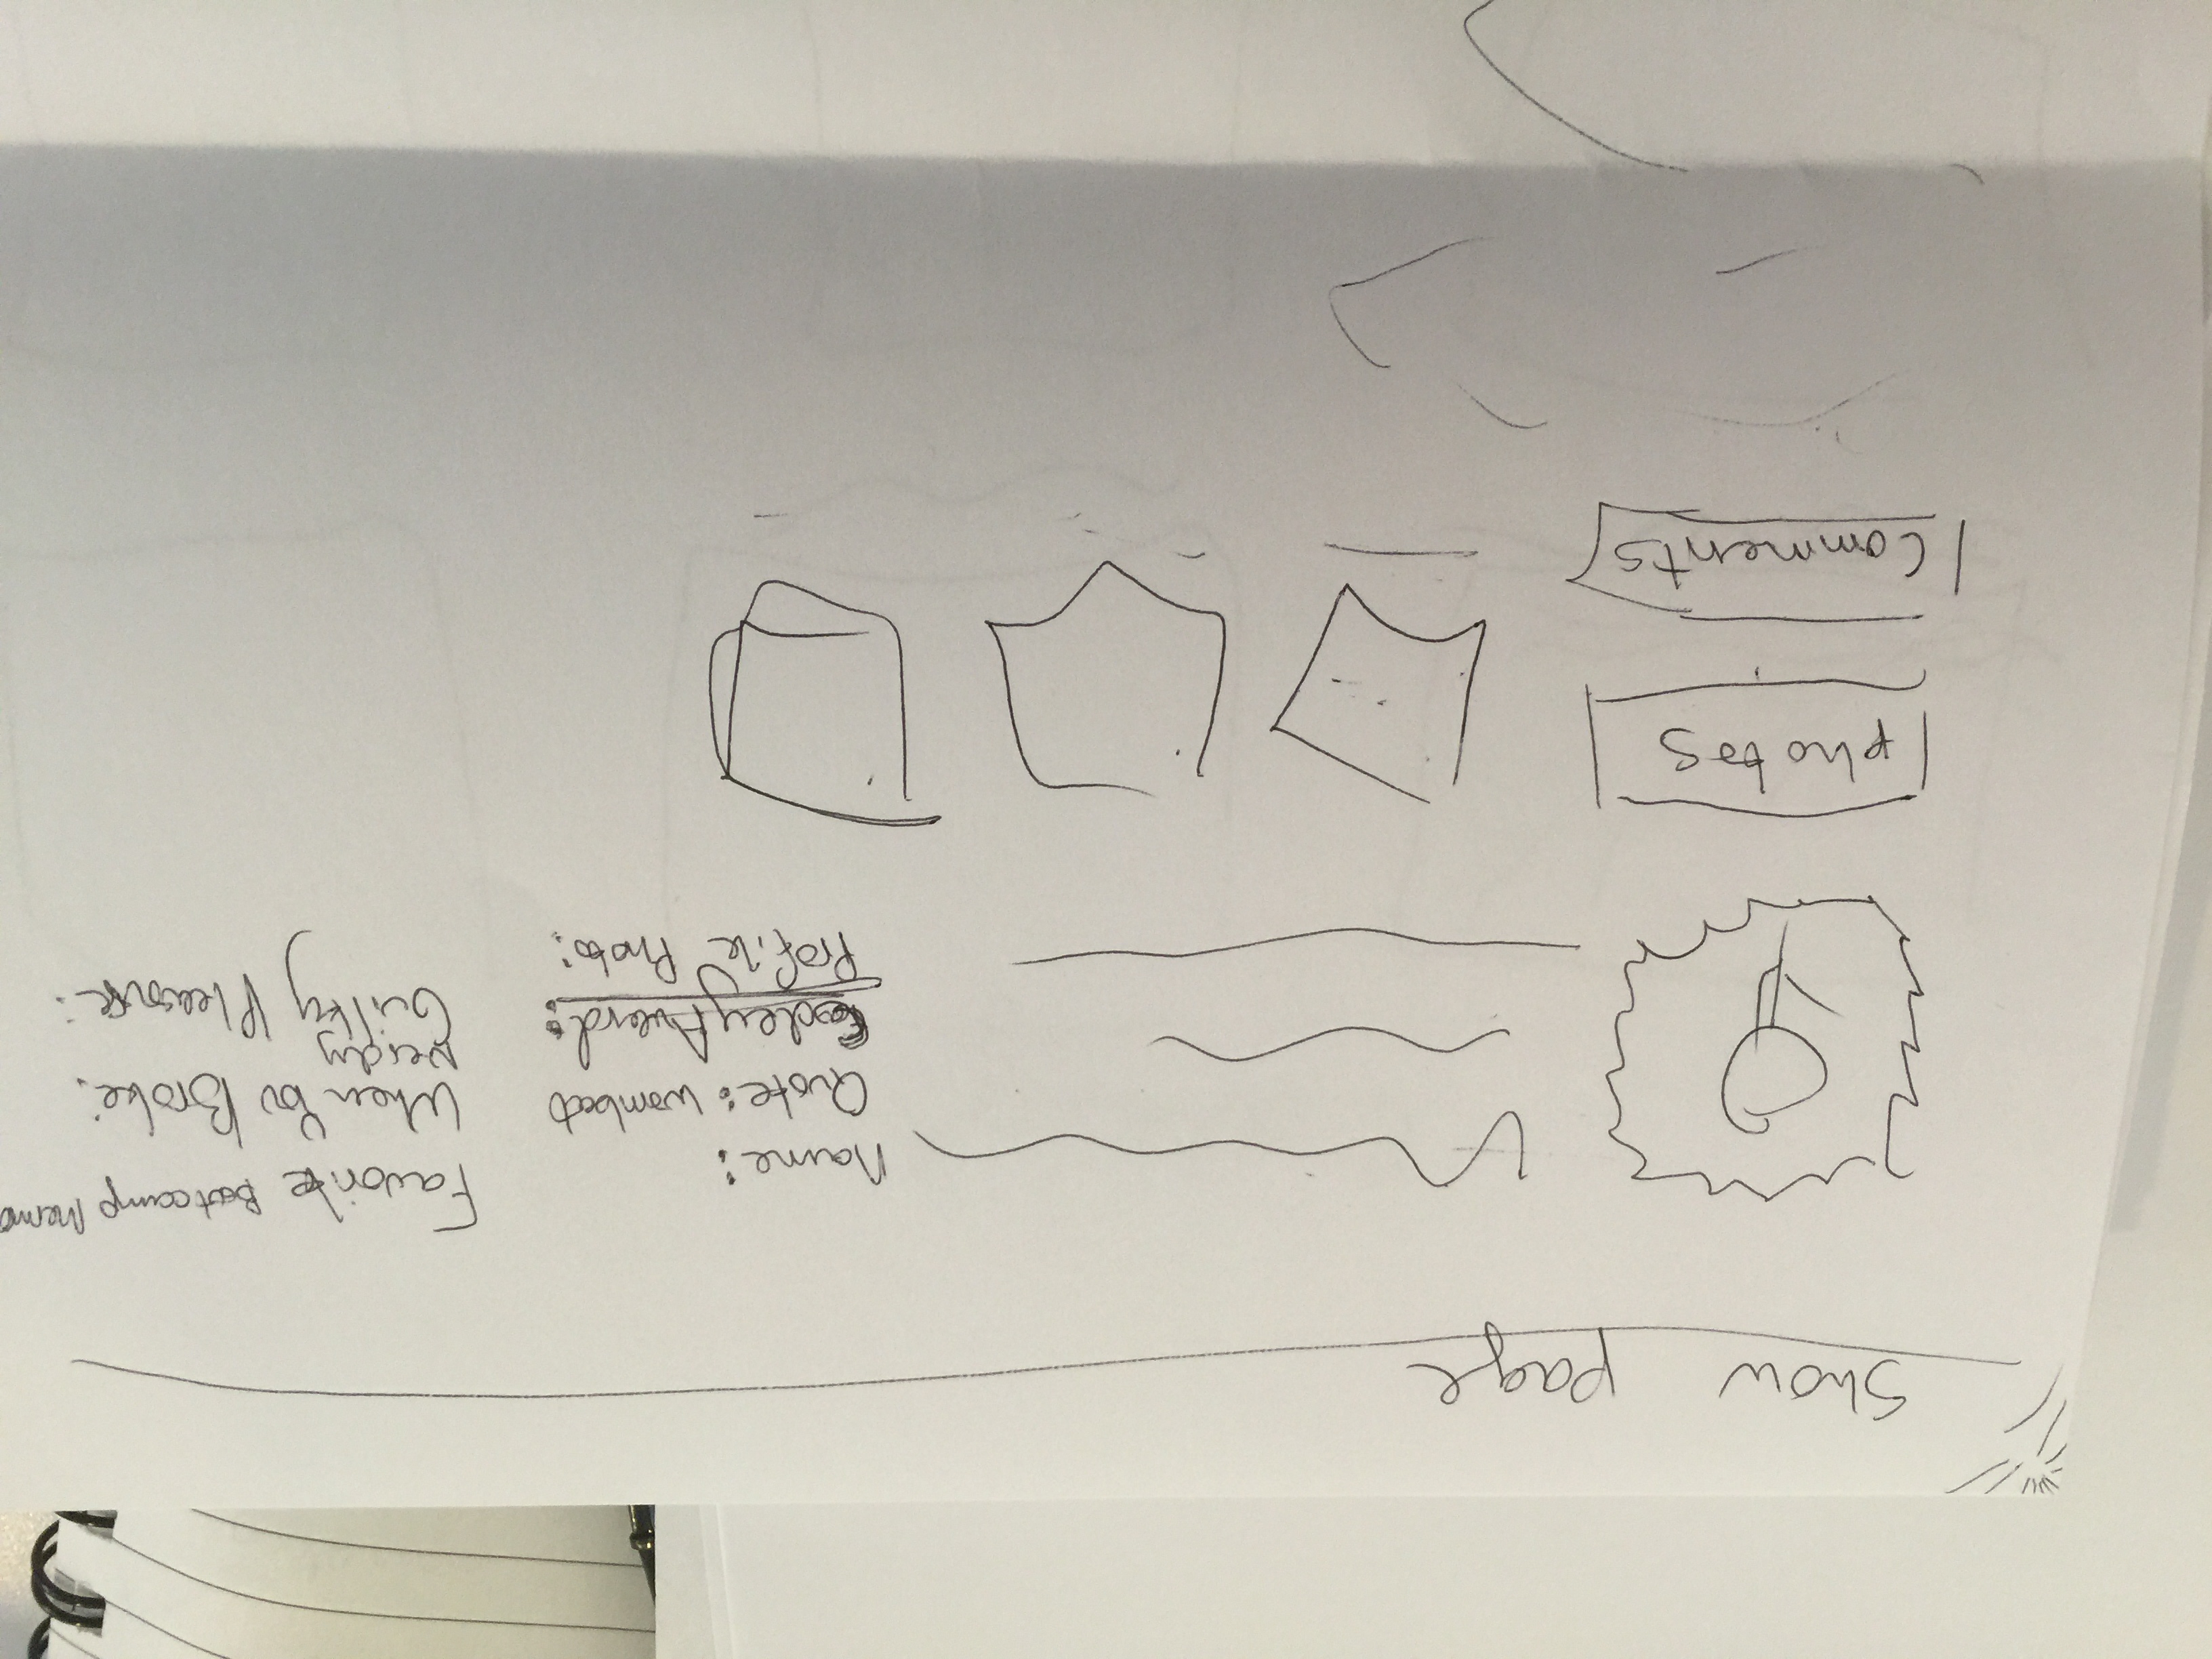 Show page
Name:
Quote: wombat
Codey Award:
Profile Photo:
Favorite Bootcamp Memo
When You Broke:
Nerdy
Guilty Pleasure:
photos
Comments